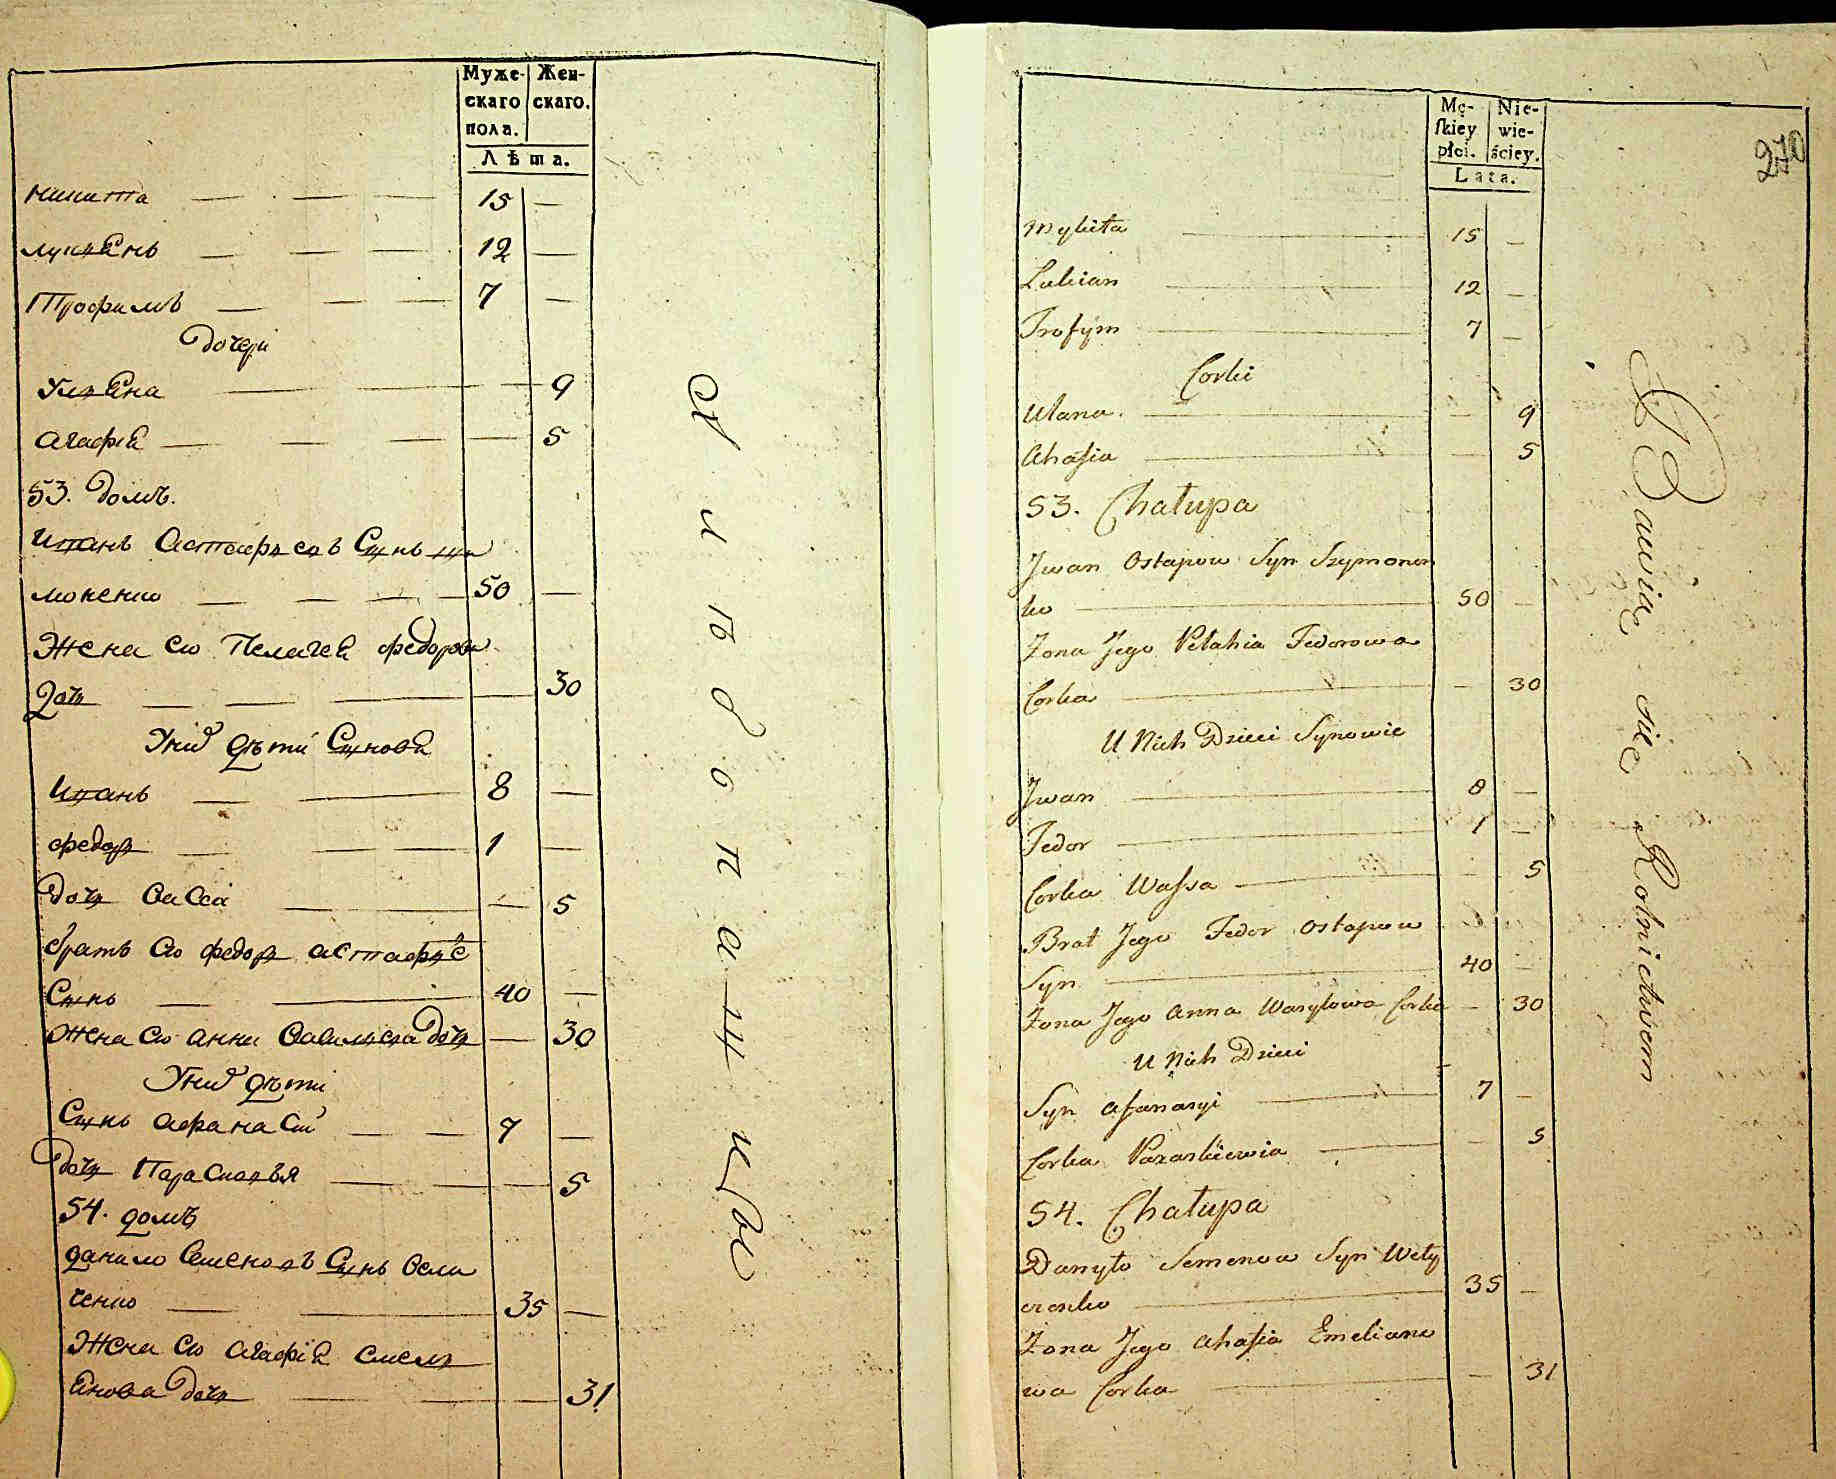 Муже-
скаго
пола.
Жен-
скаго.
Лѣта.
Никита — — — 15 —
Лукьянъ — — — 12 —
Трофимъ — — — 7 —
Дочери
Ульяна — — 9
Агафия — — — — 5
53. Домъ.
Иванъ Астафьевъ Сынъ Ши
моненко — — — — 50 —
Жена его Пелагея Федорова
Дочь — — — — 30
У них дѣти Сыновя
Иванъ — — 8 —
Федоръ — — — 1 —
Дочь Васса — — 5
братъ его Федоръ Астафьев
Сынъ — — 40 —
Жена его Анна Савельева Дочь — 30
У них дѣти
Сынъ Афанасий — — 7 —
Дочь Парасковья — — — 5
54. домъ
Данило Семеновъ Сынъ Вели
ченко — — 35 —
Жена его Агафия Емель
янова Дочь — — — 31
Хлѣбопаш
Mę-
ſkiey
płci.
Nie-
wie-
ściey.
Lata.
270
Mykita — 15 —
Lukian — 12 —
Trofym — 7 —
Corki
Ulana. — — 9
Ahafia — — 5
53. Chałupa
Jwan Ostapow Syn Szymonen
ko — 50 —
Żona Jego Pelahia Fedorowa
Corka — — 30
U Nich Dzieci Synowie
Jwan — 8 —
Fedor — 1 —
Corka Wassa — — 5
Brat Jego Fedor Ostapow
Syn — 40 —
Żona Jego Anna Wasylowa Corka — 30
U Nich Dzieci
Syn Afanasyi — 7 —
Corka Paraskiewia — — 5
54. Chałupa
Danyło Semenow Syn Wely
czenko — 35 —
Żona Jego Ahafia Emeliano
wa Corka — — 31
Bawią się Rolnictwem